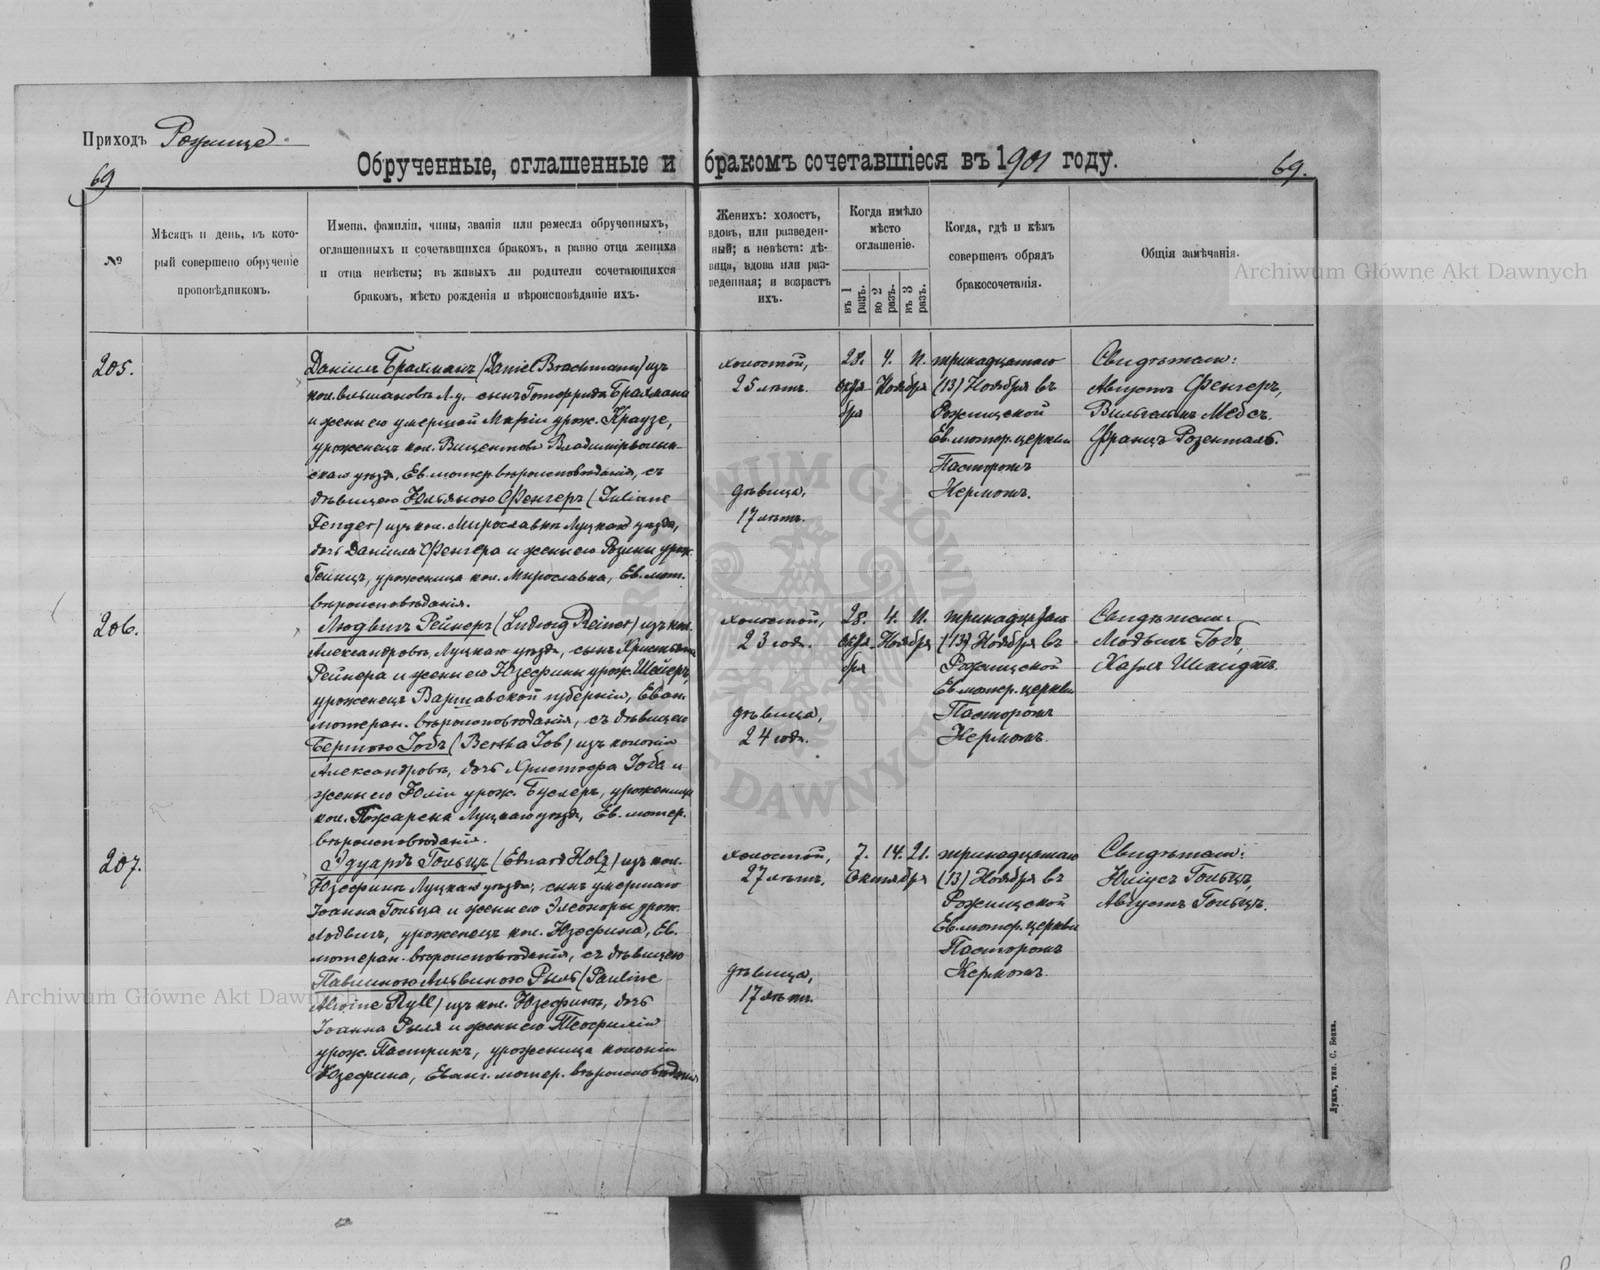 Приходъ Рожище
Обрученные, оглашенные и бракомъ сочетавшіеся въ 1901 году.
69
69.
№
Мѣсяцъ и день, въ кото-
рый совершено обрученіе
проповѣдникомъ.
Имена, фамиліи, чины, званія или ремесла обрученныхъ,
оглашенныхъ и сочетавшихся бракомъ, а равно отца жениха
и отца невѣсты; въ живыхъ ли родители сочетающихся
бракомъ, мѣсто рожденія и вѣроисповѣданіе ихъ.
Женихъ: холостъ,
вдовъ, или разведен-
ный; а невѣста: дѣ-
вица, вдова или раз-
веденная; и возрастъ
ихъ.
Когда имѣло
мѣсто
оглашеніе.
въ 1 разъ.
во 2 разъ.
въ 3 разъ.
Когда, гдѣ и кѣмъ
совершенъ обрядъ
бракосочетанія.
Общія замѣчанія.
205.
Даніилъ Брахманъ (Daniel Brachmann) изъ
кол. Л.у. сынъ Готфрида Брахмана
и жены его умершей Маріи урож. Краузе,
уроженецъ кол. Вицентовъ Владимірволын-
скаго уѣзда, Ев. лютер. вѣроисповѣданія, съ
дѣвицею Юльяною Фенгеръ (Juliane
Fenger) изъ кол. Мирославкъ Луцкаго уѣзда,
дочь Даніила Фенгера и жены его Розины урож.
Гейнцъ, уроженица кол. Мирославка, Ев. лют.
вѣроисповѣданія.
холостой,
25 лѣтъ.
дѣвица,
17 лѣтъ.
28. 4. 11.
октя- Ноября
бря
тринадцатаго
(13) Ноября въ
Рожищской
Ев. лютер. церкви
Пасторомъ
Кермомъ.
Свидѣтели:
Августъ Фенгеръ,
Вильгельмъ Мебсъ.
Францъ Розенталь.
206.
Людвигъ Рейнеръ (Ludwig Reiner) изъ кол.
Александровкъ, Луцкаго уѣзда, сынъ Христьяна
Рейнера и жены его Юзефины урож. Шейеръ,
уроженецъ Варшавской губерніи, Еван.
лютеран. вѣроисповѣданія, съ дѣвицею
Бертою Іобъ (Bertha Job) изъ колоніи
Александровкъ, дочь Христофа Іоба и
жены его Юліи урож. Буслеръ, уроженица
кол. Пожарена Луцкаго уѣзда, Ев. лютер.
вѣроисповѣданія.
холостой,
23 года.
дѣвица,
24 года.
28. 4. 11.
октя- Ноября
бря
тринадцатаго
(13) Ноября въ
Рожищской
Ев. лютер. церкви
Пасторомъ
Кермомъ.
Свидѣтели:
Іобъ,
Карлъ Шмидтъ.
207.
Эдуардъ Гольцъ (Eduard Holz) изъ кол.
Юзефинъ Луцкаго уѣзда, сынъ умершаго
Іоанна Гольца и жены его Элеоноры урож.
Людвигъ, уроженецъ кол. Юзефина, Ев.
лютеран. вѣроисповѣданія, съ дѣвицею
Павлиною Альвиною Рылъ (Pauline
Alwine Ryll) изъ кол. Юзефинъ, дочь
Іоанна Рыля и жены его Теофиліи
урож. Пастрикъ, уроженица колоніи
Юзефина, Еванг. лютер. вѣроисповѣданія
холостой,
27 лѣтъ.
дѣвица,
17 лѣтъ.
7. 14. 21.
Октября
тринадцатаго
(13) Ноября въ
Рожищской
Ев. лютер. церкви
Пасторомъ
Кермомъ.
Свидѣтели:
Юліусъ Гольцъ,
Августъ Гольцъ.
Луцкъ, тип. С. Бонка.
Archiwum Główne Akt Dawnych
Archiwum Główne Akt Dawnych